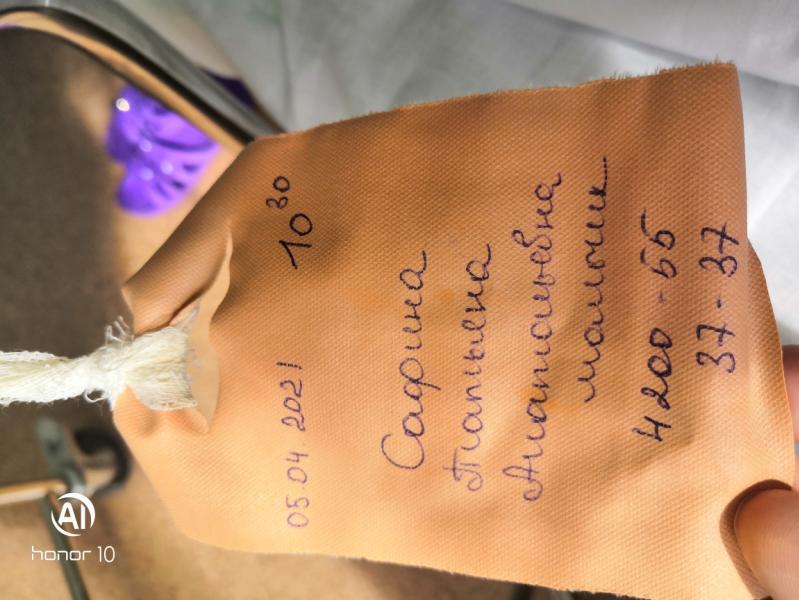 05.04.2021 10 30
Сафина
Татьяна
Анатольевна
мальчик
4200 - 55
37 - 37
AI
honor 10